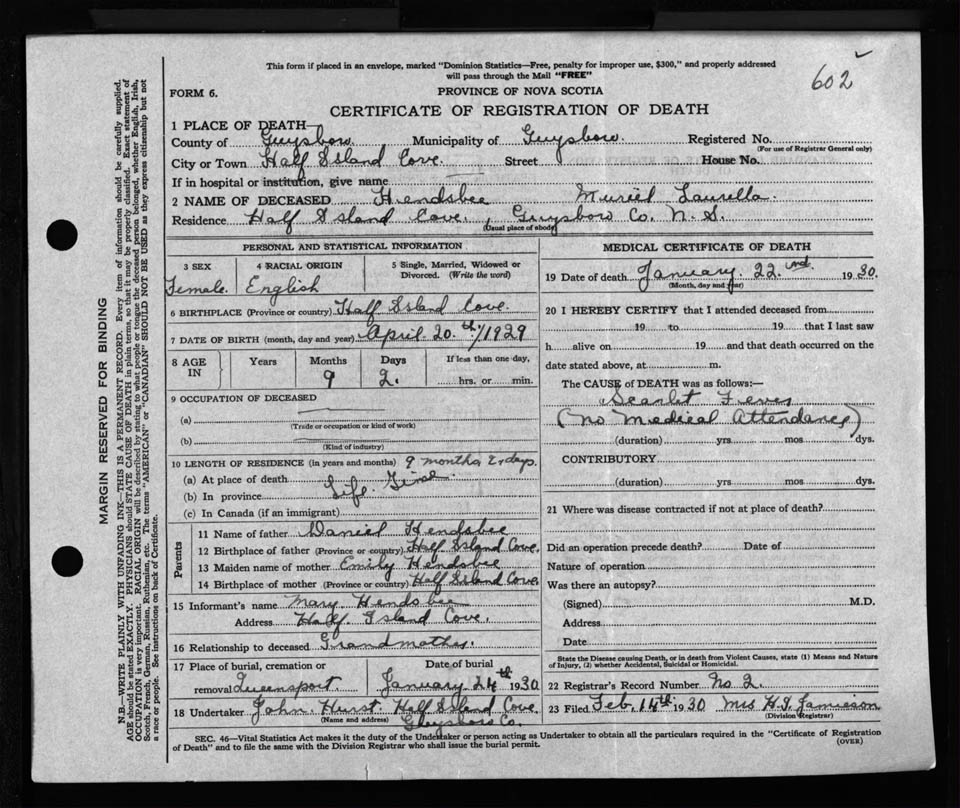 This form if placed in an envelope, marked "Dominion Statistics—Free, penalty for improper use, $300," and properly addressed
will pass through the Mail "FREE"
602
FORM 6.
PROVINCE OF NOVA SCOTIA
CERTIFICATE OF REGISTRATION OF DEATH
1 PLACE OF DEATH—
County of Guysboro. Municipality of Guysboro. Registered No.
(For use of Registrar General only)
City or Town Half Island Cove. Street House No.
If in hospital or institution, give name
2 NAME OF DECEASED Hendsbee Muriel Laurella.
Residence Half Island Cove, Guysboro Co. N.S.
(Usual place of abode)
PERSONAL AND STATISTICAL INFORMATION
3 SEX 4 RACIAL ORIGIN 5 Single, Married, Widowed or
Divorced. (Write the word)
Female. English
6 BIRTHPLACE (Province or country) Half Island Cove.
7 DATE OF BIRTH (month, day and year) April 20th/1929
8 AGE IN Years Months Days If less than one day,
9 2. hrs. or min.
9 OCCUPATION OF DECEASED
(a)
(Trade or occupation or kind of work)
(b)
(Kind of industry)
10 LENGTH OF RESIDENCE (in years and months) 9 months 2 days.
(a) At place of death
(b) In province Life Time.
(c) In Canada (if an immigrant)
Parents
11 Name of father Daniel Hendsbee
12 Birthplace of father (Province or country) Half Island Cove.
13 Maiden name of mother Emily Hendsbee
14 Birthplace of mother (Province or country) Half Island Cove.
15 Informant's name Mary Hendsbee
Address Half Island Cove.
16 Relationship to deceased Grandmother.
17 Place of burial, cremation or Date of burial
removal Queensport. January 24th 1930
18 Undertaker John Hurst Half Island Cove
(Name and address) Guysboro Co.
MEDICAL CERTIFICATE OF DEATH
19 Date of death January 22nd. 1930.
(Month, day and year)
20 I HEREBY CERTIFY that I attended deceased from
19 to 19 that I last saw
h alive on 19 and that death occurred on the
date stated above, at m.
The CAUSE of DEATH was as follows:—
Scarlet Fever
(no Medical Attendance)
(duration) yrs mos dys.
CONTRIBUTORY
(duration) yrs mos dys.
21 Where was disease contracted if not at place of death?
Did an operation precede death? Date of
Nature of operation
Was there an autopsy?
(Signed) M.D.
Address
Date
State the Disease causing Death, or in death from Violent Causes, state (1) Means and Nature
of Injury, (2) whether Accidental, Suicidal or Homicidal.
22 Registrar's Record Number No 2.
23 Filed Feb. 14th 1930 Mrs H.S. Jamieson
(Division Registrar)
SEC. 46—Vital Statistics Act makes it the duty of the Undertaker or person acting as Undertaker to obtain all the particulars required in the "Certificate of Registration
of Death" and to file the same with the Division Registrar who shall issue the burial permit.
(OVER)
MARGIN RESERVED FOR BINDING
N.B.—WRITE PLAINLY WITH UNFADING INK—THIS IS A PERMANENT RECORD. Every item of information should be carefully supplied.
AGE should be stated EXACTLY. PHYSICIANS should STATE CAUSE OF DEATH in plain terms, so that it may be properly classified. Exact statement of
OCCUPATION is very important. RACIAL ORIGIN will be described by stating to what people or tongue the deceased person belonged, whether English, Irish,
Scotch, French, German, Russian, Ruthenian, etc. The terms "AMERICAN" or "CANADIAN" SHOULD NOT BE USED as they express citizenship but not
a race or people. See instructions on back of Certificate.